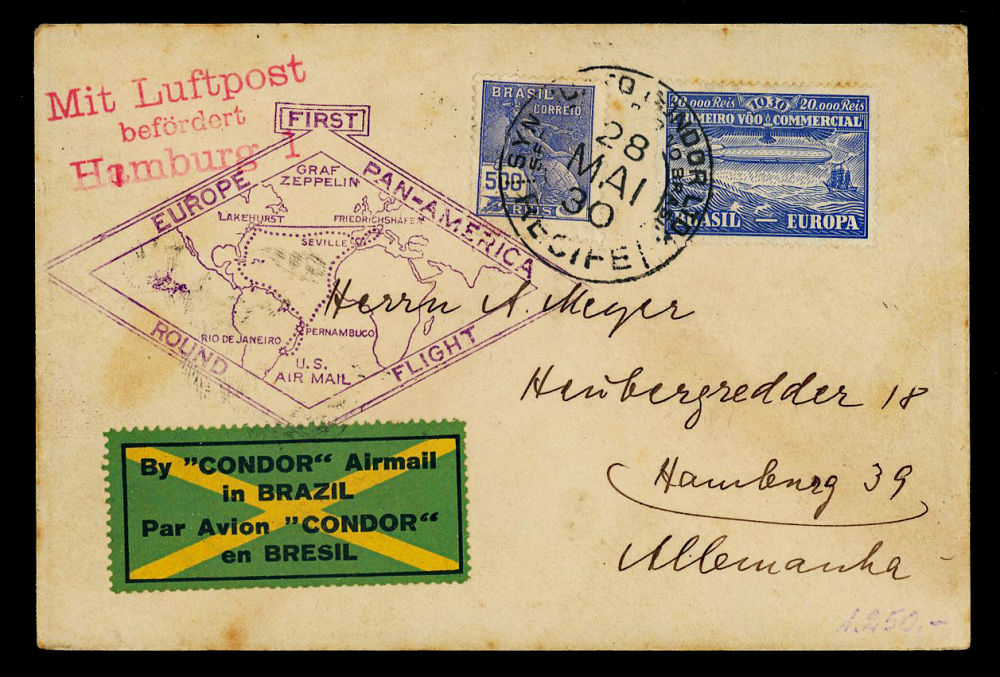 Mit Luftpost
befördert
Hamburg 1
FIRST
EUROPE
PAN-AMERICA
ROUND
FLIGHT
GRAF
ZEPPELIN
LAKEHURST
FRIEDRICHSHAFEN
SEVILLE
RIO DE JANEIRO
PERNAMBUCO
U.S.
AIR MAIL
BRASIL
CORREIO
500
REIS
28
MAI
30
RECIFE
1930
20.000 Reis 20.000 Reis
PRIMEIRO VÔO COMMERCIAL
BRASIL — EUROPA
Herrn A. Meyer
Heubergredder 18
Hamburg 39
Allemanha
By "CONDOR“ Airmail
in BRAZIL
Par Avion "CONDOR“
en BRESIL
1.250.-